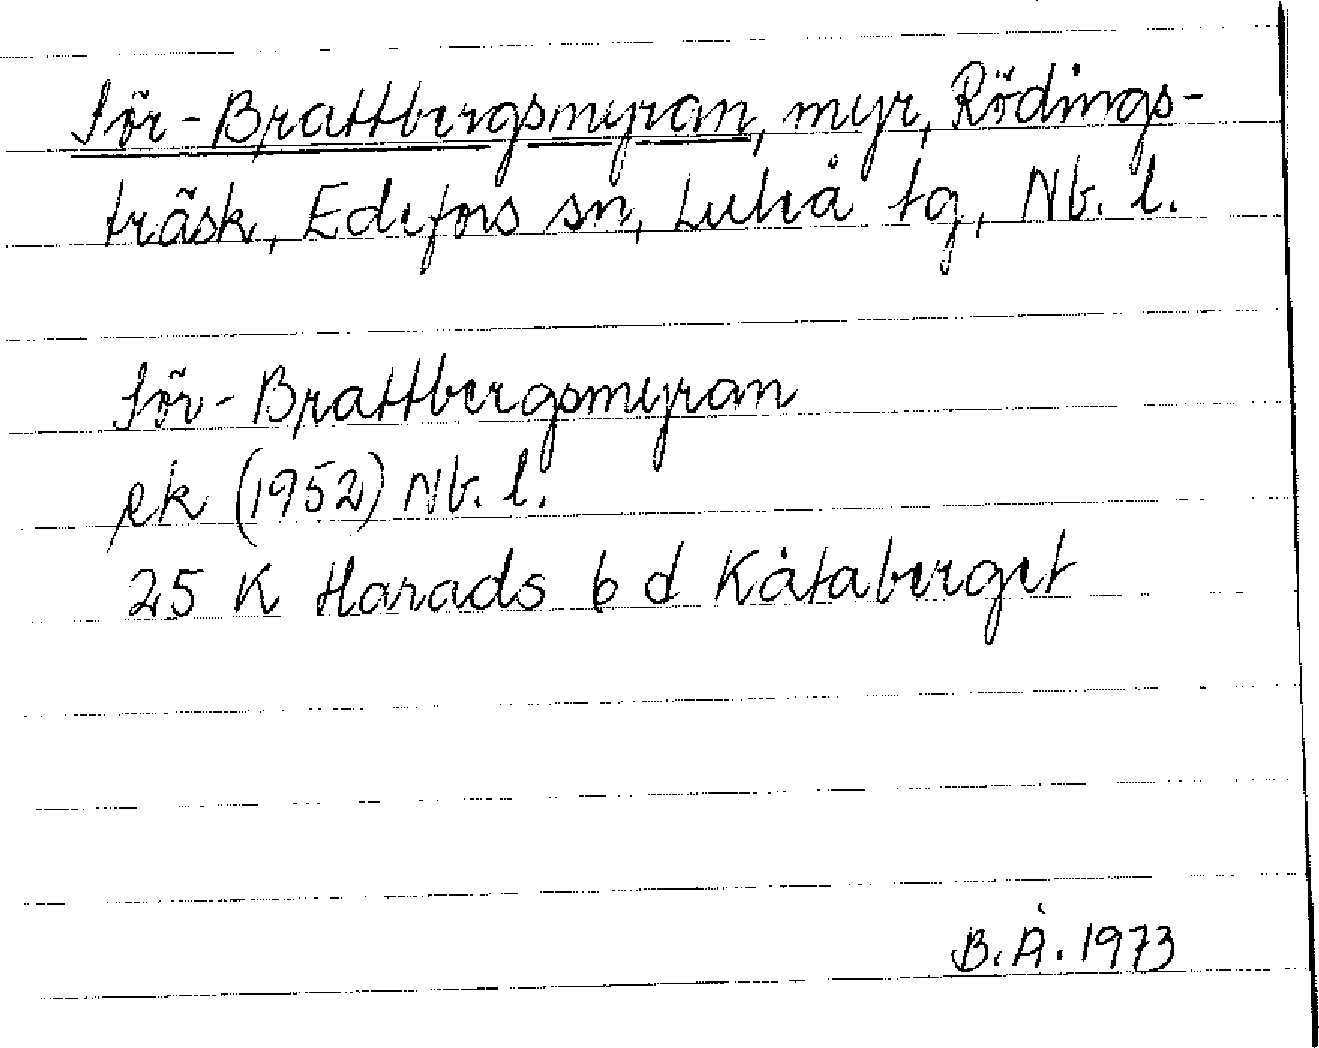 Sör-Brattbergsmyran, myr, Rödings-
träsk, Edefors sn, Luleå tg, Nb. l.
Sör-Brattbergsmyran
ek (1952) Nb. l.
25 K Harads 6 d Kåtaberget
B.Å. 1973